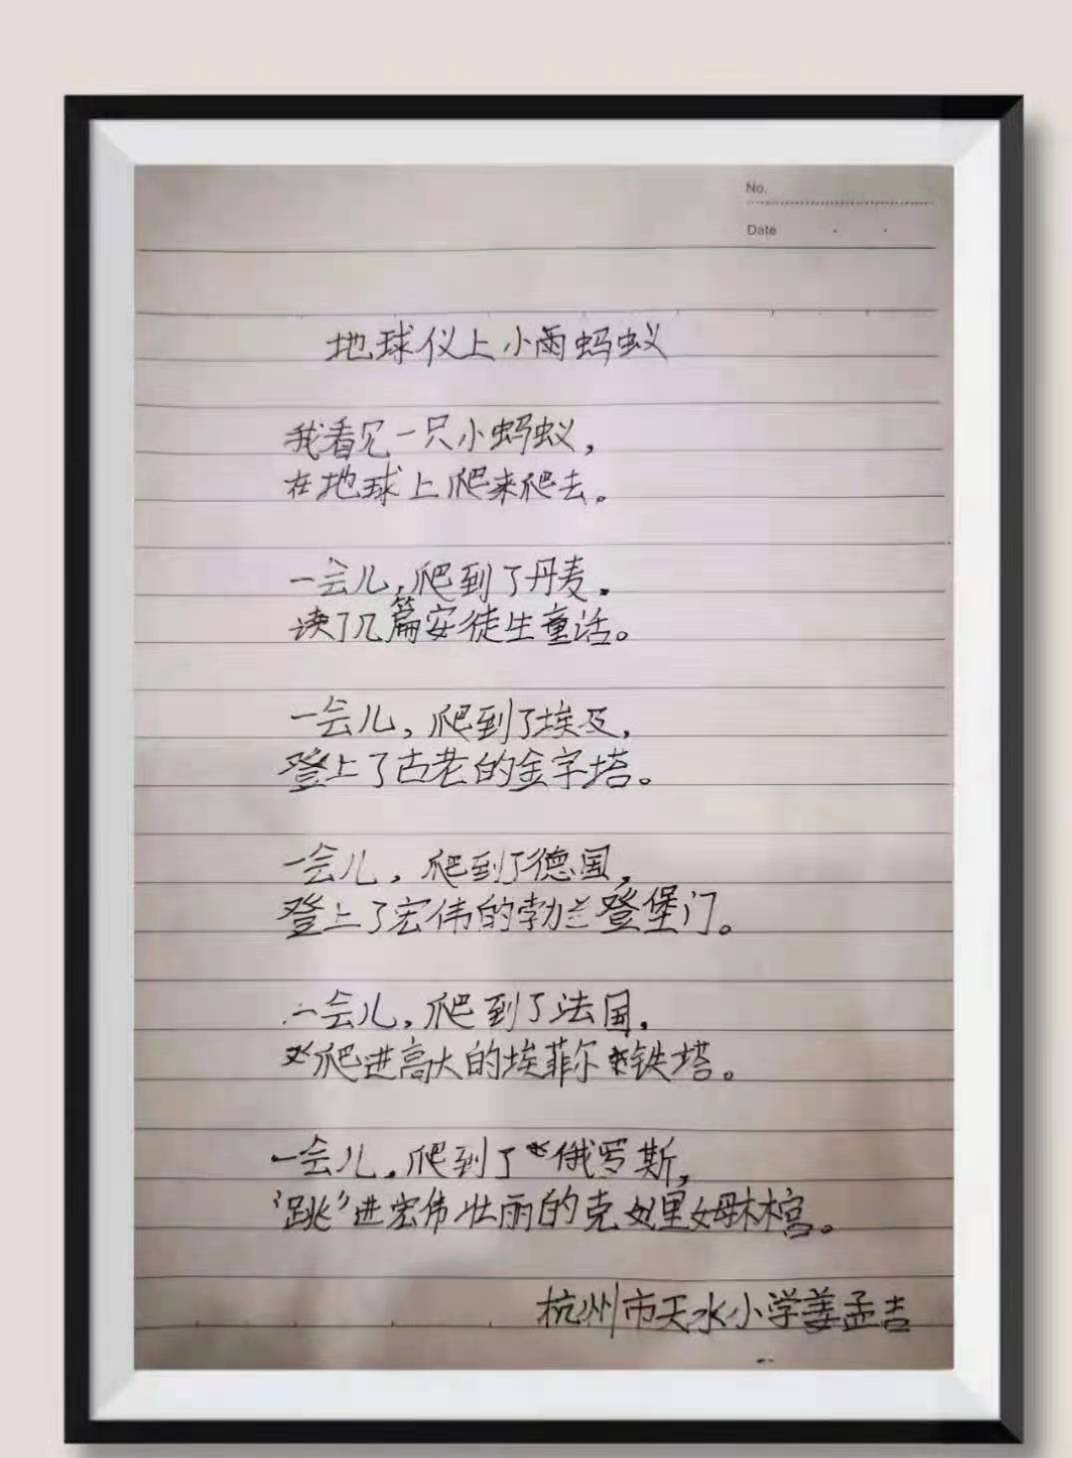 No.
Date
地球仪上小雨蚂蚁
我看见一只小蚂蚁，
在地球上爬来爬去。
一会儿，爬到了丹麦，
读了几篇安徒生童话。
一会儿，爬到了埃及，
登上了古老的金字塔。
一会儿，爬到了德国，
登上了宏伟的勃兰登堡门。
一会儿，爬到了法国，
爬进高大的埃菲尔铁塔。
一会儿，爬到了俄罗斯，
“跳”进宏伟壮丽的克里姆林宫。
杭州市天水小学姜孟吉